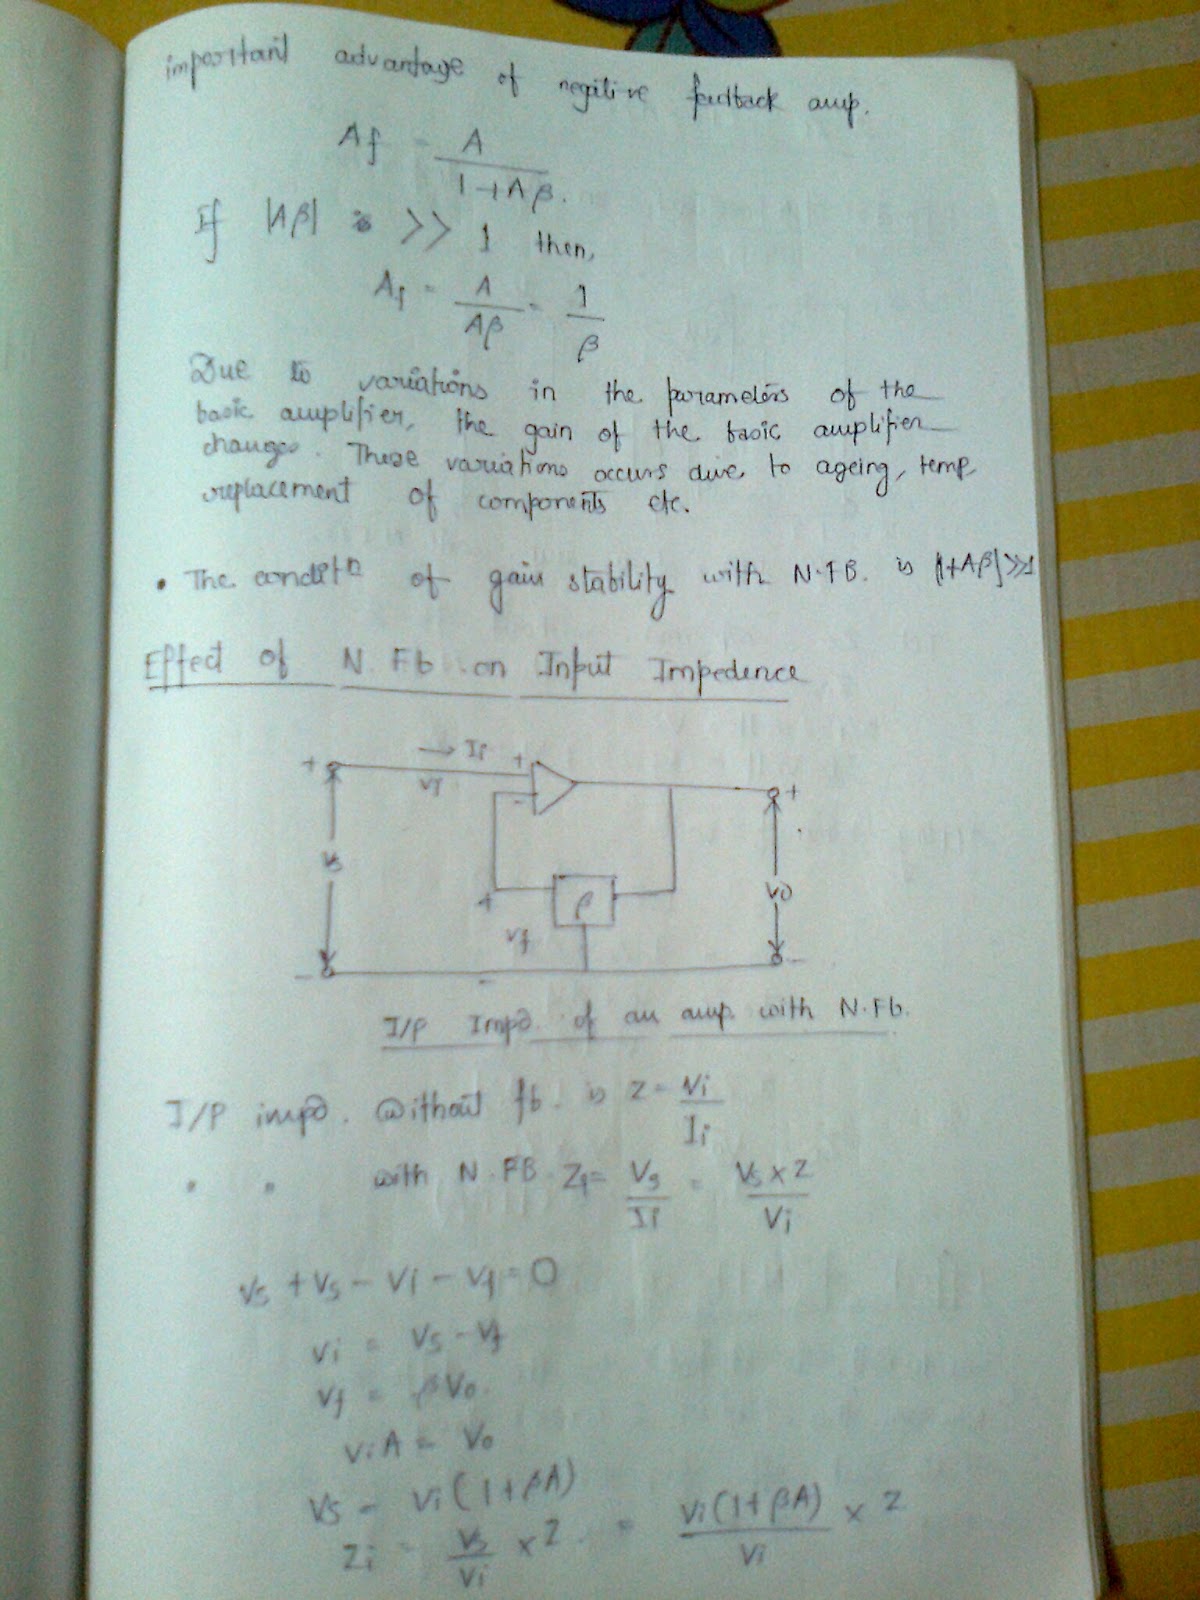 important advantage of negitive feedback amp.
Af = A / 1+Aβ.
If |Aβ| is >> 1 then,
Af = A / Aβ = 1 / β
Due to variations in the parameters of the
basic amplifier, the gain of the basic amplifier
changes. These variations occurs due to ageing, temp,
replacement of components etc.
• The conditn of gain stability with N.FB. is |1+Aβ| >>1
Effect of N.Fb. on Input Impedence
→ Ii
+ + +
Vi -
Vs
+ β Vo
Vf
- - -
I/P Impd. of an amp. with N.Fb.
I/P impd. Without fb. is Z = Vi / Ii
" " with N.FB. Zf = Vs / Ii = Vs × Z / Vi
Vs + Vs - Vi - Vf = 0
Vi = Vs - Vf
Vf = βVo.
ViA = Vo
Vs = Vi(1+βA)
Zi = Vs / Vi × Z. = Vi(1+βA) / Vi × Z